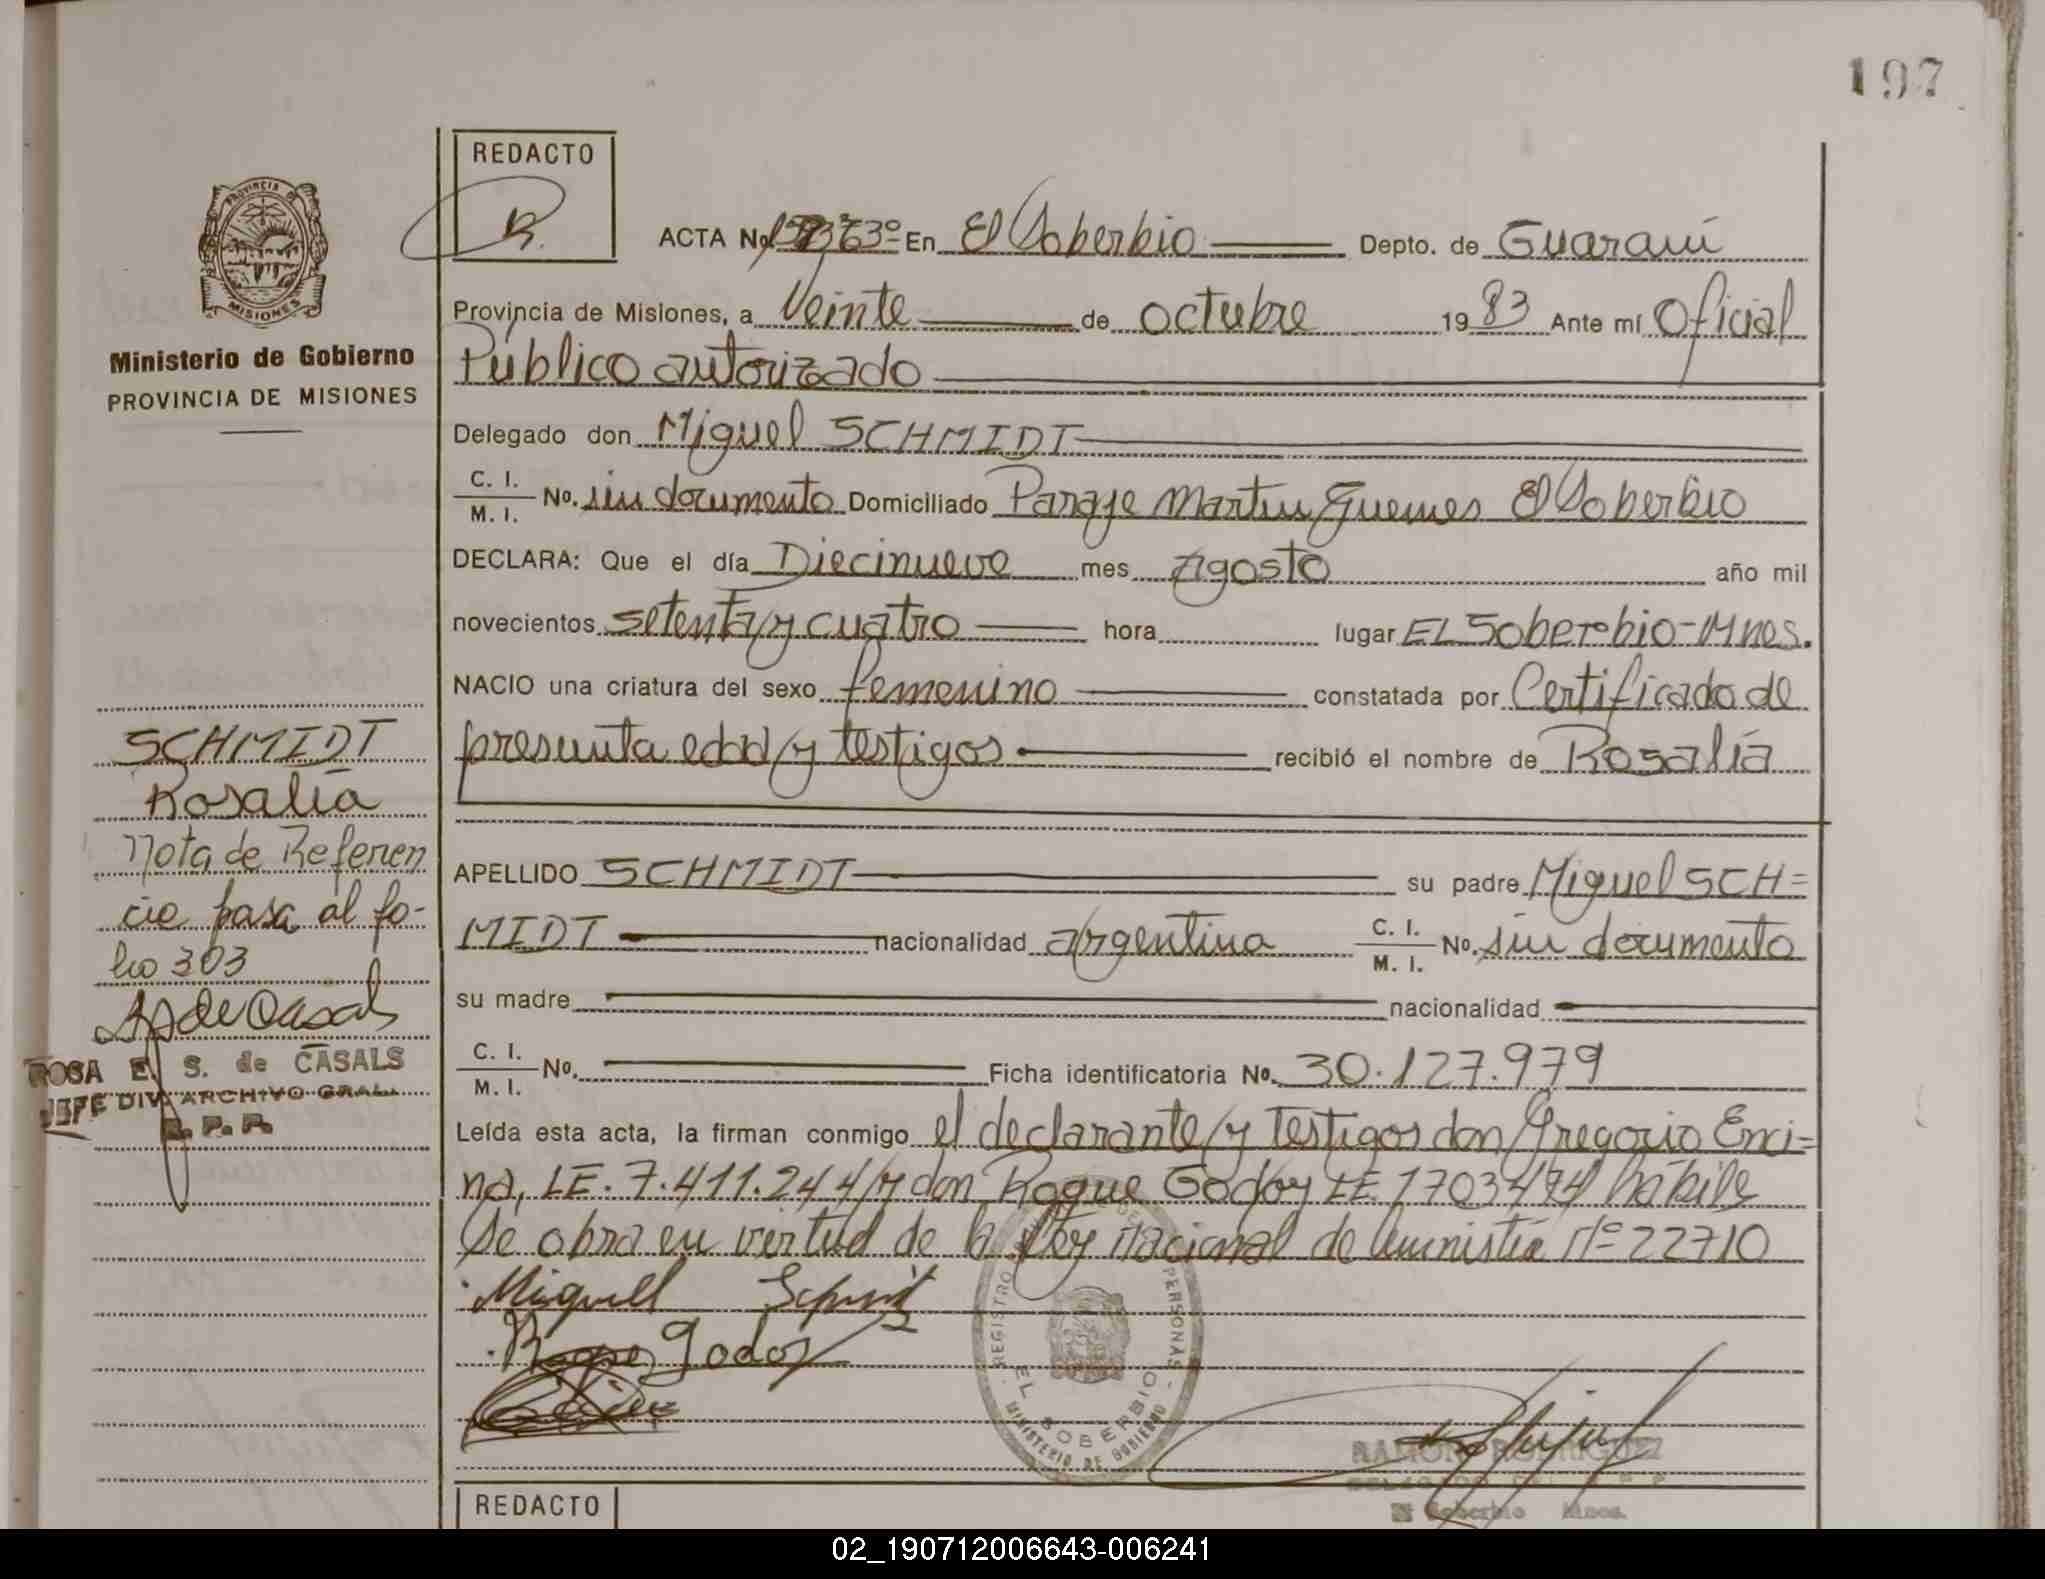 197
REDACTO
R.
ACTA No En El Soberbio Depto. de Guaraní
PROVINCIA MISIONES
Provincia de Misiones, a Veinte de octubre 1983 Ante mí Oficial
Público autorizado
Ministerio de Gobierno
PROVINCIA DE MISIONES
Delegado don Miguel SCHMIDT
C. I.
M. I. No. sin documento Domiciliado Paraje Martin Guemes El Soberbio
DECLARA: Que el día Diecinueve mes Agosto año mil
novecientos setenta y cuatro hora lugar EL Soberbio-Mnes.
NACIO una criatura del sexo femenino constatada por Certificado de
presunta edad y testigos recibió el nombre de Rosalía
SCHMIDT
Rosalía
Nota de Referen
cia pasa al fo-
lio 303
APELLIDO SCHMIDT su padre Miguel SCH=
MIDT nacionalidad argentina C. I.
M. I. No. sin documento
su madre nacionalidad
ROSA E. S. de CASALS
JEFE DIV. ARCHIVO GRAL.
R. P. P.
C. I.
M. I. No. Ficha identificatoria No. 30.127.979
Leída esta acta, la firman conmigo el declarante y testigos don Gregorio Enci=
na, LE. 7.411.244 y don Roque Godoy LE. 1703474 hábile
Se obra en virtud de la Ley Nacional de Amnistía Nº 22710
Miguell Schmit
Roque Godoy
REGISTRO PERSONAS
EL SOBERBIO
MINISTERIO DE GOBIERNO
RAMON RODRIGUEZ
El Soberbio Mnes.
REDACTO
02_190712006643-006241